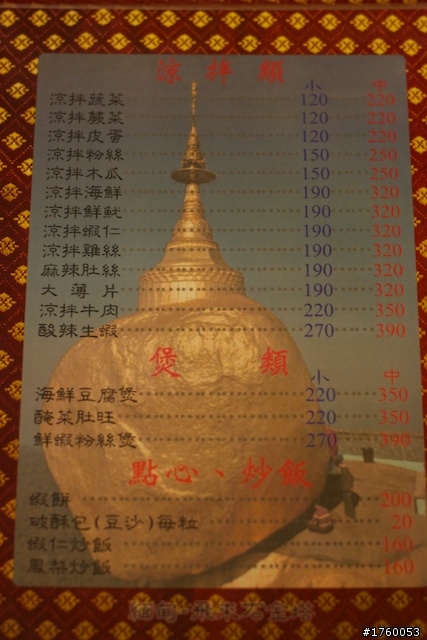 涼拌類
小 中
涼拌蔬菜 120 220
涼拌蕨菜 120 220
涼拌皮蛋 120 220
涼拌粉絲 150 250
涼拌木瓜 150 250
涼拌海鮮 190 320
涼拌鮮魷 190 320
涼拌蝦仁 190 320
涼拌雞絲 190 320
麻辣肚絲 190 320
大薄片 190 320
涼拌牛肉 220 350
酸辣生蝦 270 390
煲類
小 中
海鮮豆腐煲 220 350
醃菜肚旺 220 350
鮮蝦粉絲煲 270 390
點心、炒飯
蝦餅 200
破酥包(豆沙)每粒 20
蝦仁炒飯 160
鳳梨炒飯 160
緬甸-飛來石金塔
#1760053